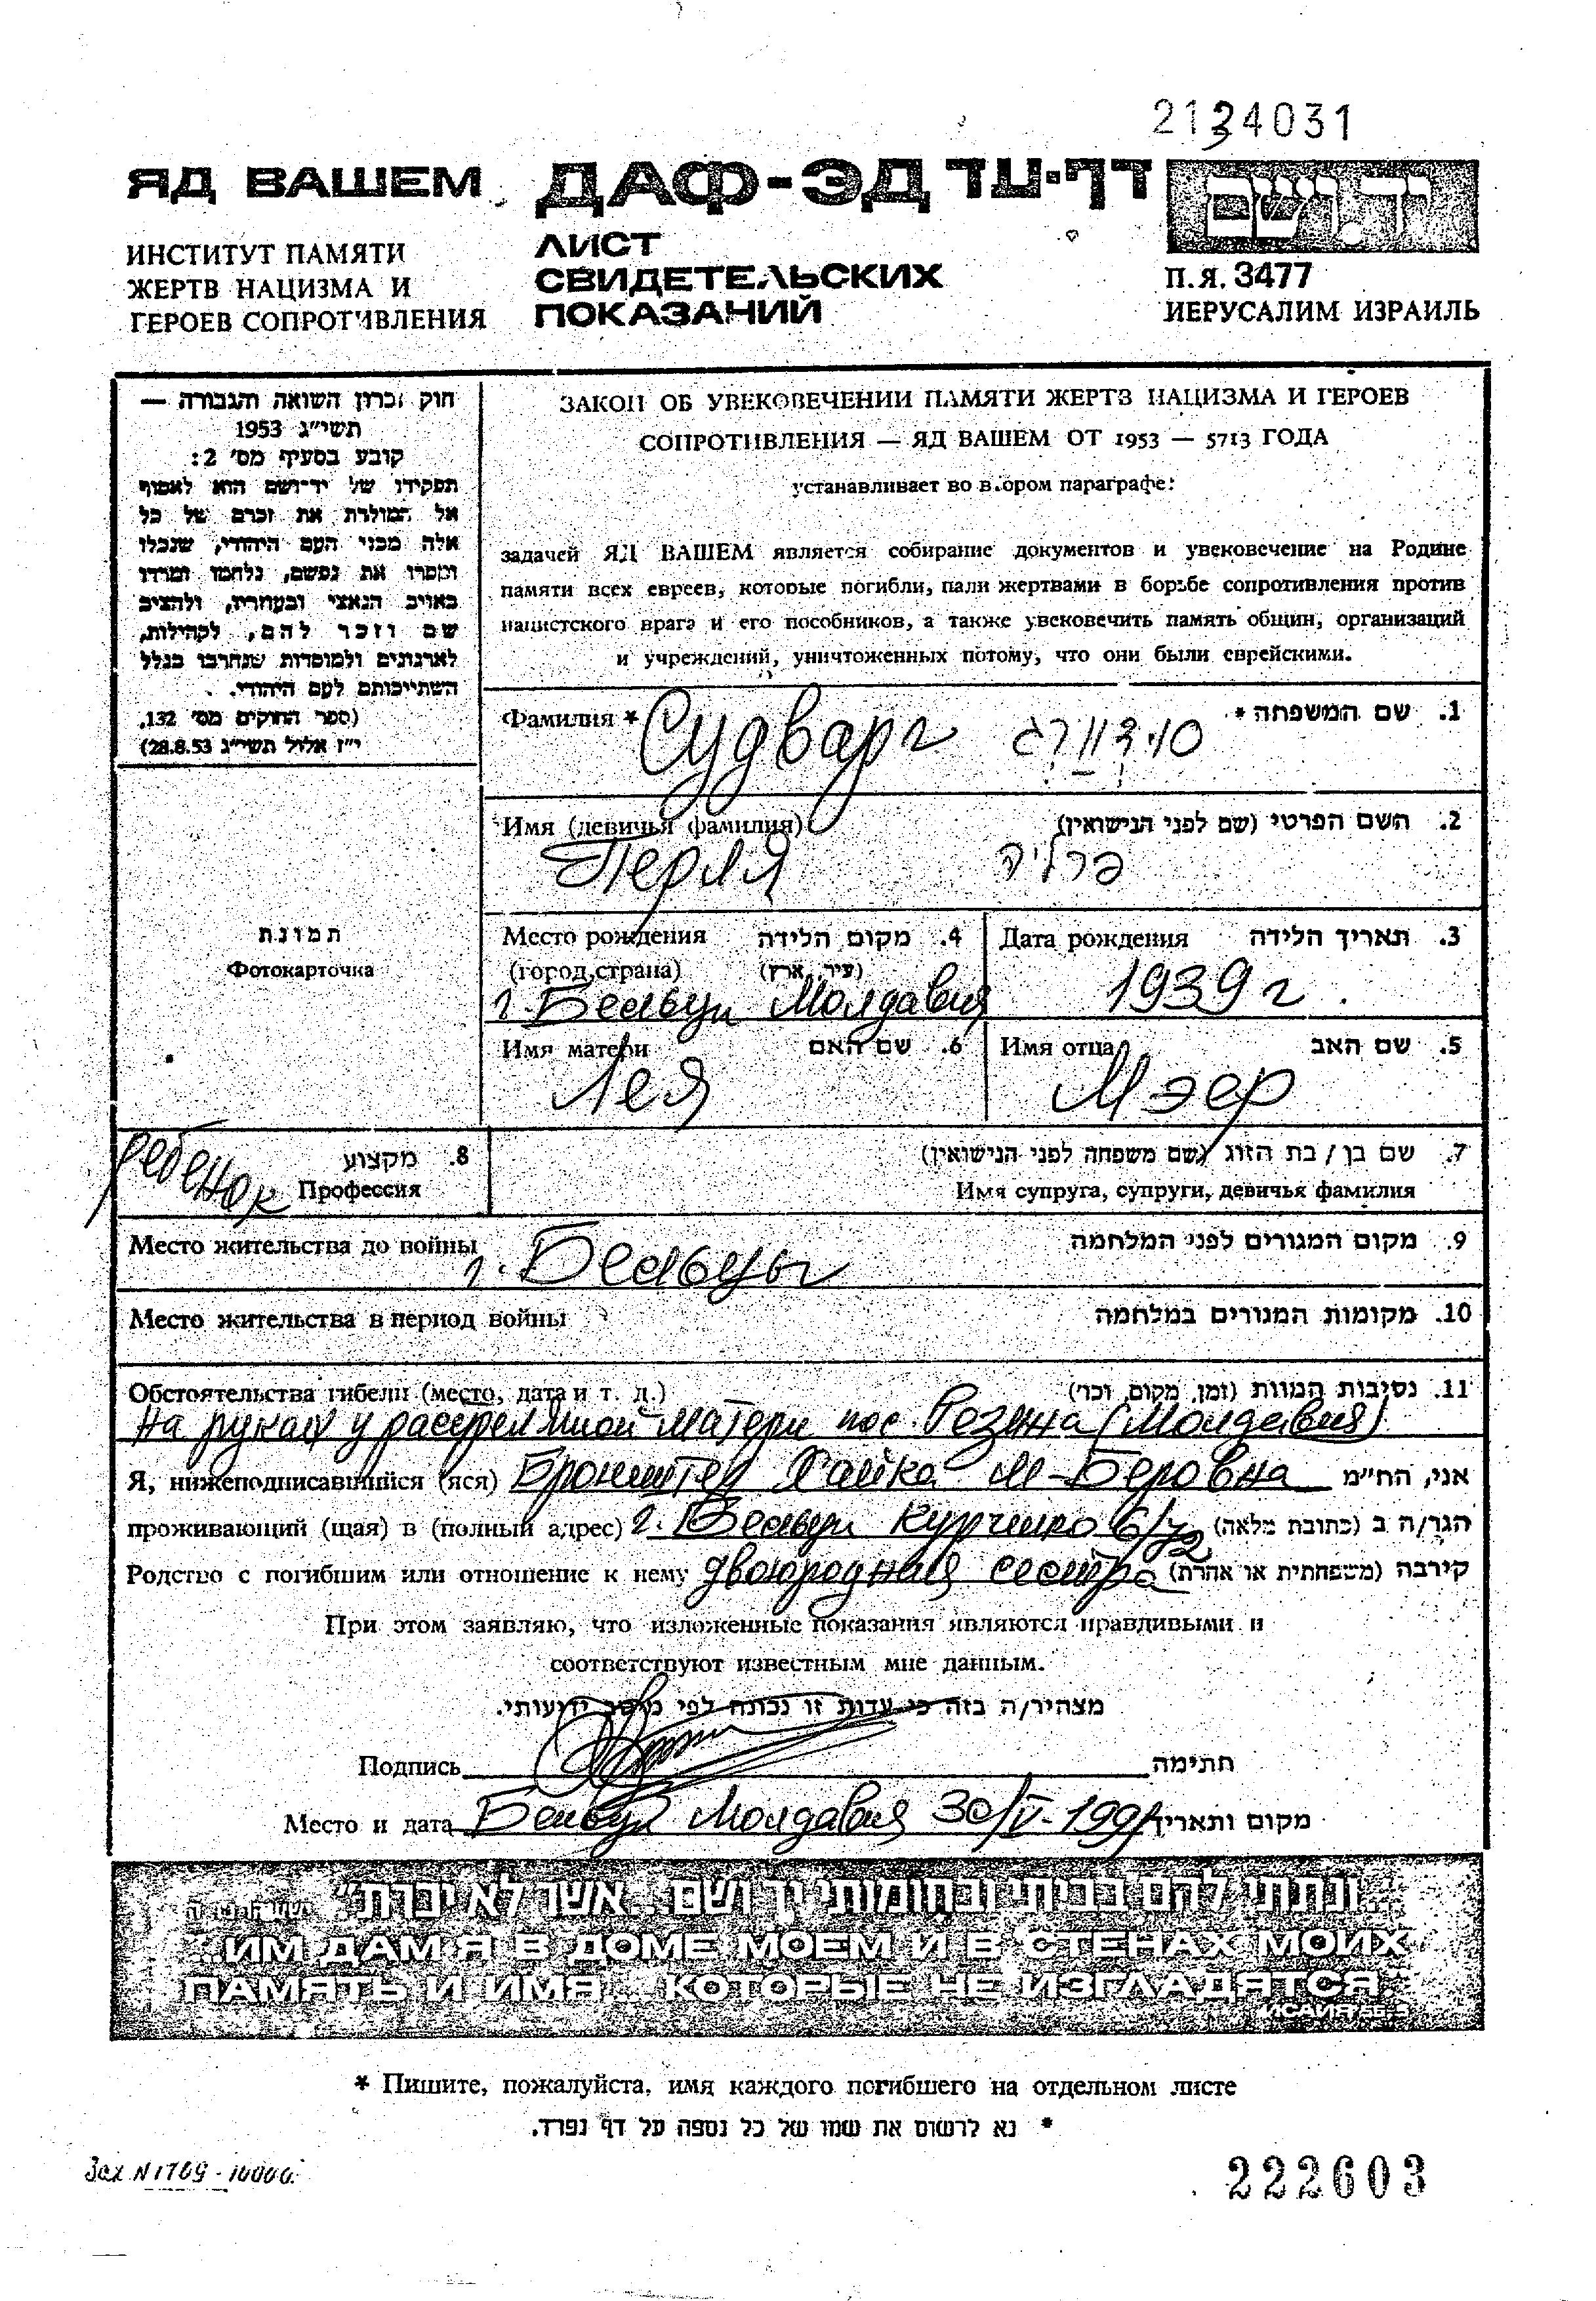 2134031
ЯД ВАШЕМ
ДАФ-ЭД דף-עד
יד ושם
ИНСТИТУТ ПАМЯТИ
ЖЕРТВ НАЦИЗМА И
ГЕРОЕВ СОПРОТИВЛЕНИЯ
ЛИСТ
СВИДЕТЕЛЬСКИХ
ПОКАЗАНИЙ
П.Я. 3477
ИЕРУСАЛИМ ИЗРАИЛЬ
חוק זכרון השואה והגבורה —
תשי"ג 1953
קובע בסעיף מס' 2:
תפקידו של יד-ושם הוא לאסוף
אל המולדת את זכרם של כל
אלה מבני העם היהודי, שנפלו
ומסרו את נפשם, נלחמו ומרדו
באויב הנאצי ובעוזריו, ולהציב
שם וזכר להם, לקהילות,
לארגונים ולמוסדות שנחרבו בגלל
השתייכותם לעם היהודי.
(ספר החוקים מס' 132,
י"ז אלול תשי"ג 28.8.53)
ЗАКОН ОБ УВЕКОВЕЧЕНИИ ПАМЯТИ ЖЕРТВ НАЦИЗМА И ГЕРОЕВ
СОПРОТИВЛЕНИЯ — ЯД ВАШЕМ ОТ 1953 — 5713 ГОДА
устанавливает во втором параграфе:
задачей ЯД ВАШЕМ является собирание документов и увековечение на Родине
памяти всех евреев, которые погибли, пали жертвами в борьбе сопротивления против
нацистского врага и его пособников, а также увековечить память общин, организаций
и учреждений, уничтоженных потому, что они были еврейскими.
Фамилия * Судварг סודווארג 1. שם המשפחה *
Имя (девичья фамилия) 2. השם הפרטי (שם לפני הנישואין)
Перля פרליה
תמונת
Фотокарточка
Место рождения 4. מקום הלידה
(город, страна) (עיר, ארץ)
г. Бельцы Молдавия
Дата рождения 3. תאריך הלידה
1939 г.
Имя матери 6. שם האם
Лея
Имя отца 5. שם האב
Мэер
ребенок
8. מקצוע
Профессия
7. שם בן / בת הזוג (שם משפחה לפני הנישואין)
Имя супруга, супруги, девичья фамилия
Место жительства до войны г. Бельцы 9. מקום המגורים לפני המלחמה
Место жительства в период войны 10. מקומות המגורים במלחמה
Обстоятельства гибели (место, дата и т. д.) 11. נסיבות המוות (זמן, מקום, וכו')
На руках у расстрелянной матери пос. Резина (Молдавия)
Я, нижеподписавшийся (яся) Бронштер Хайка М-Беровна אני, הח"מ
проживающий (щая) в (полный адрес) г. Бельцы Курченко 6/72 הגר/ה ב (כתובת מלאה)
Родство с погибшим или отношение к нему двоюродная сестра קירבה (משפחתית או אחרת)
При этом заявляю, что изложенные показания являются правдивыми и
соответствуют известным мне данным.
מצהיר/ה בזה כי עדות זו נכונה לפי מיטב ידיעותי.
Подпись חתימה
Место и дата Бельцы Молдавия 30/IV-1991 מקום ותאריך
...ונתתי להם בביתי ובחומותי יד ושם... אשר לא יכרת"
...ИМ ДАМ Я В ДОМЕ МОЕМ И В СТЕНАХ МОИХ
ПАМЯТЬ И ИМЯ... КОТОРЫЕ НЕ ИЗГЛАДЯТСЯ.
* Пишите, пожалуйста, имя каждого погибшего на отдельном листе
* נא לרשום את שמו של כל נספה על דף נפרד.
Зак N 1769 - 10000
222603